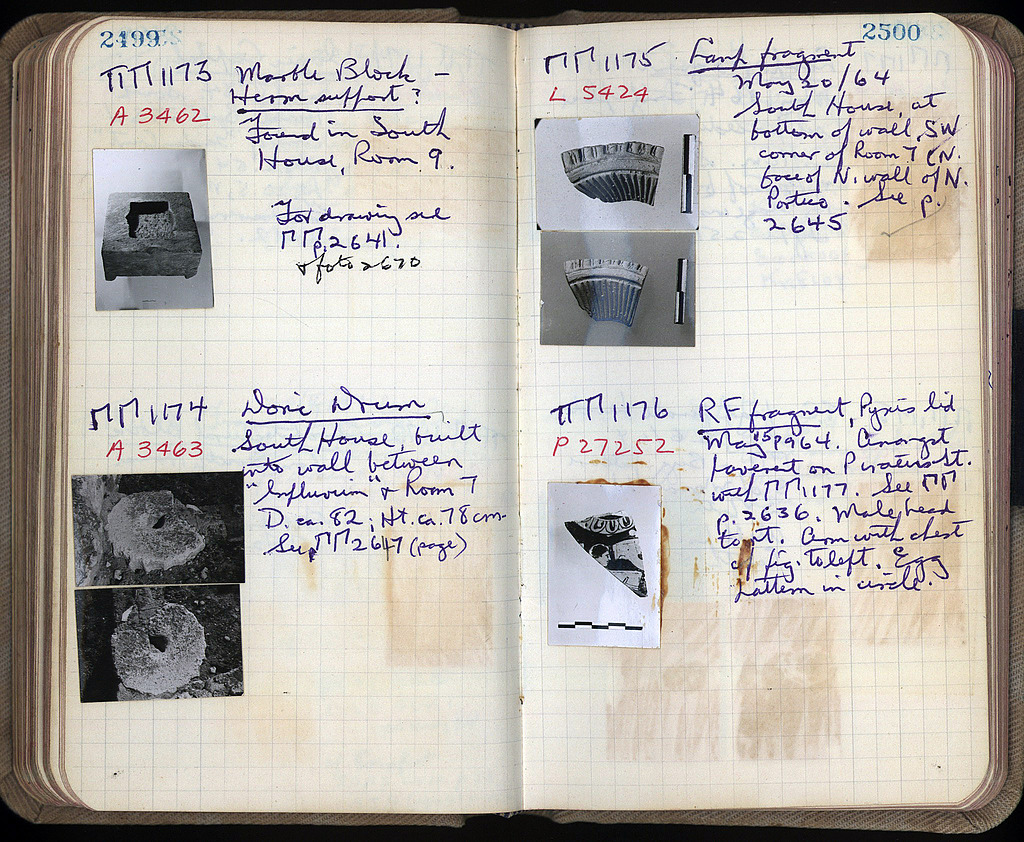 2499
ΠΠ 1173 Marble Block –
Herm support?
A 3462
Found in South
House, Room 9.
For drawing see
ΠΠ p. 2641.
+ foto 2670
ΠΠ 1174 Doric Drum
A 3463
South House, built
into wall between
"Impluvium" & Room 7
D. ca. 82; Ht. ca. 78 cm.
See ΠΠ 2647 (page)
2500
ΠΠ 1175 Lamp fragment
L 5424
May 20/64
South House, at
bottom of wall, SW
corner of Room 7 (N.
face of N. wall of N.
Portico. See p.
2645
ΠΠ 1176 RF fragment, Pyxis lid
P 27252
May 15, 1964. Amongst
on Piraeus St.
with ΠΠ 1177. See ΠΠ
p. 2636. Male head
to rt. Arm with chest
of fig. to left. Egg
pattern in circle.